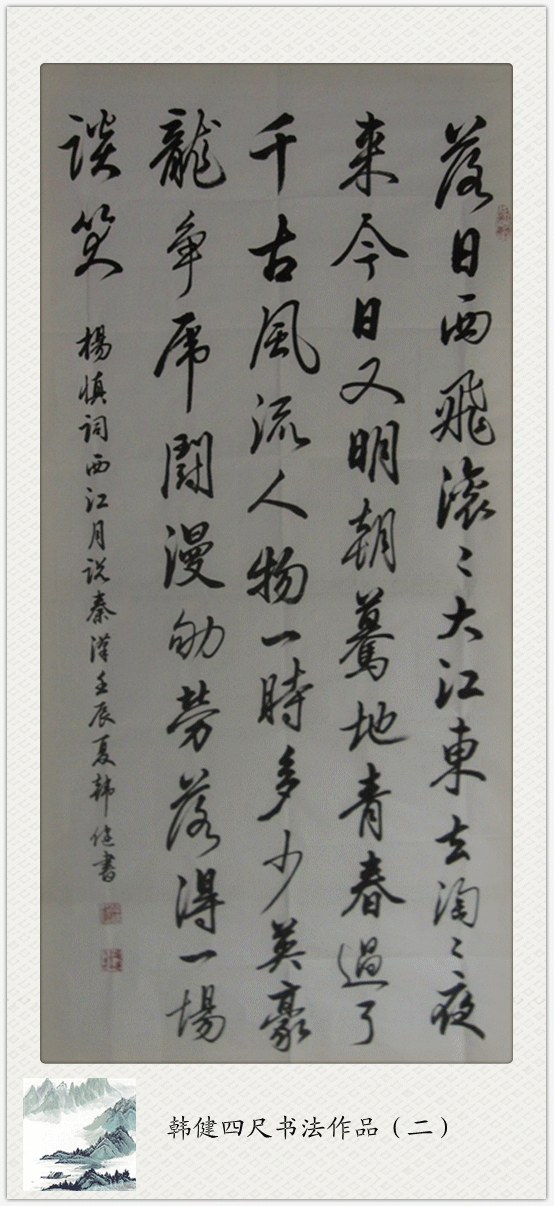 落日西飛滚〻大江東去淘〻夜
来今日又明朝驀地青春過了
千古風流人物一時多少英豪
龍争虎鬪漫劬勞落得一場
談笑
楊慎詞西江月説秦漢壬辰夏韩健書
韩健四尺书法作品（二）